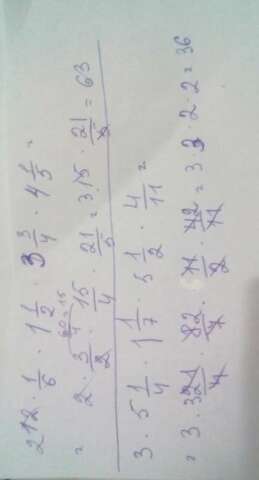 212 · 1/6 · 1 1/2 · 3 3/4 · 4 1/5 =
60/4 = 15
= 2 · 3/2 · 15/4 · 21/5 = 3 · 15 · 21/5 = 63
3 · 5 1/4 · 1 1/7 · 5 1/2 · 4/11 =
= 3 · 3 21/4 · 82/7 · 11/2 · 42/11 = 3 · 3 · 2 · 2 · 2 = 36